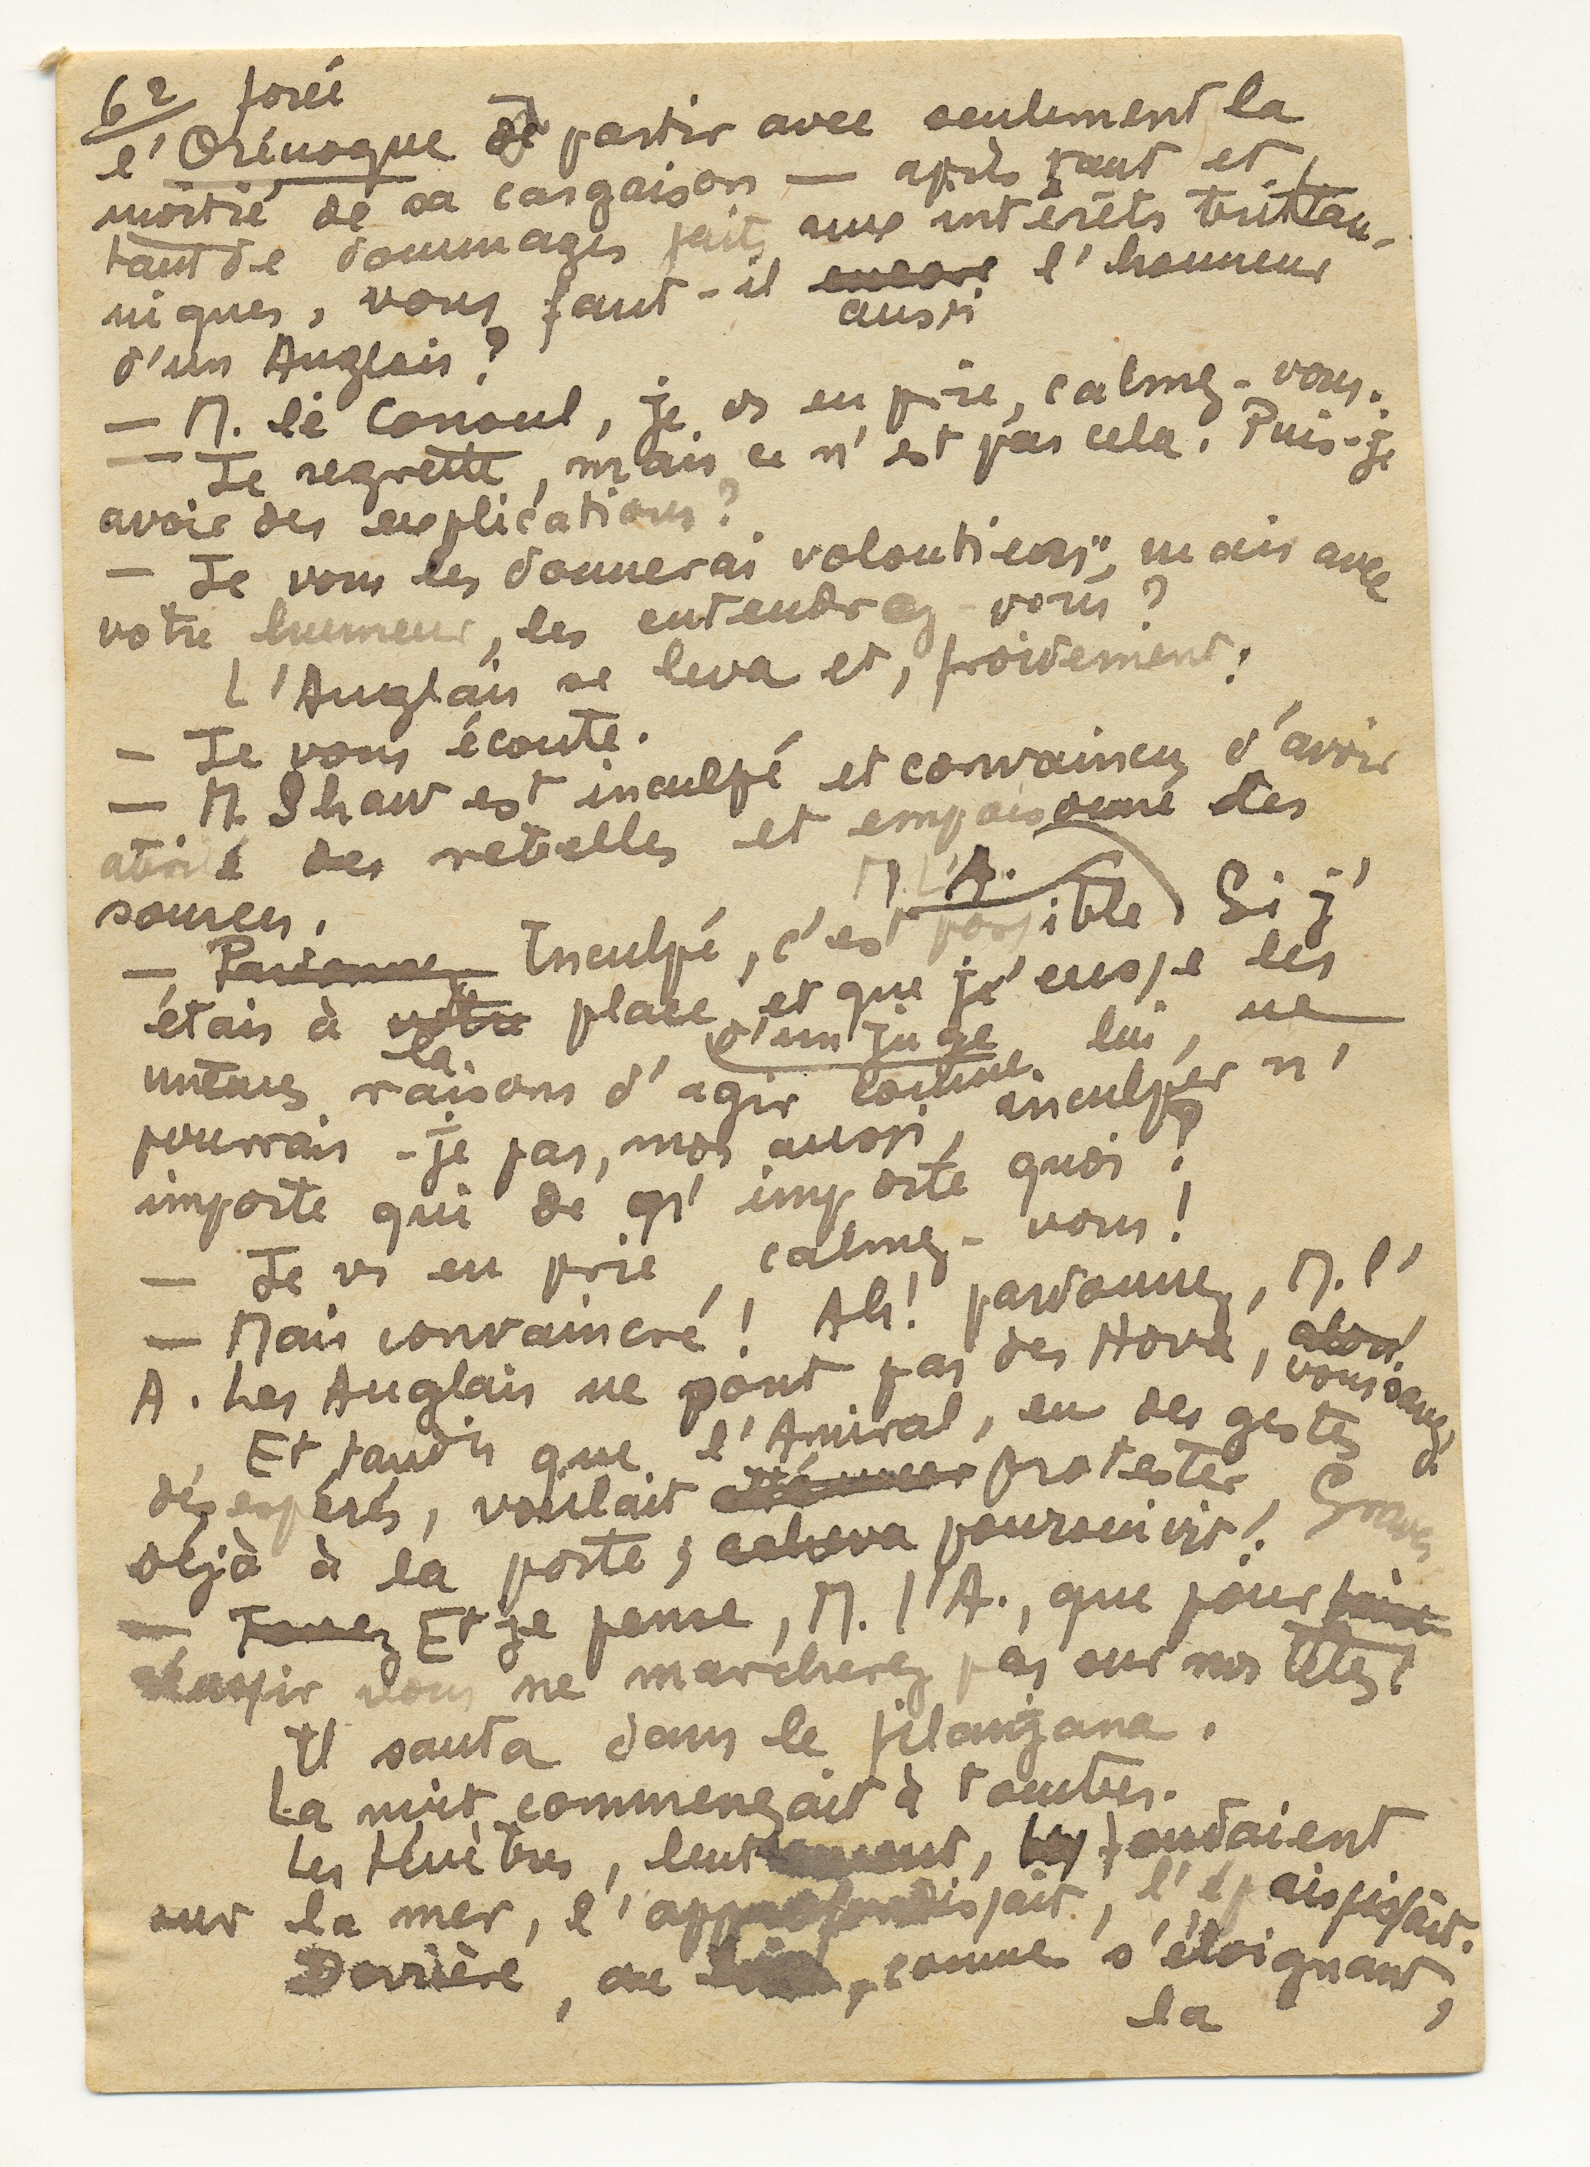 62 forcé
l'Orénoque de partir avec seulement la
moitié de sa cargaison — après tant et
tant de dommages faits aux intérêts britan-
niques, vous faut-il encore l'honneur
aussi
d'un Anglais?
— M. le Consul, je vs en prie, calmez-vous.
— Je regrette, mais ce n'est pas cela. Puis-je
avoir des explications?
— Je vous les donnerai volontiers, mais avec
votre humeur, les entendrez-vous?
L'Anglais se leva et, froidement:
— Je vous écoute.
— M. Shaw est inculpé et convaincu d'avoir
abrité des rebelles et empoisonné des
sources.
M. L'A.
— Pardonnez Inculpé, c'est possible Si j'
étais à votre place et que j'eusse les
la d'un juge lui, ne
mêmes raisons d'agir comme
pourrais-je pas, moi aussi, inculper n'
importe qui de n'importe quoi?
— Je vs en prie, calmez-vous!
— Mais convaincré! Ah! pardonnez, M. l'
A. Les Anglais ne sont pas des Hova, alors!
vous savez.
Et tandis que l'Amiral, en des gestes
désespérés, voulait protester, Graves
déjà à la porte, acheva poursuivit:
— Tenez Et je pense, M. l'A., que pour
réussir vous ne marcherez pas sur nos têtes!
Il sauta dans le filanjana.
La nuit commençait à tomber.
Les ténèbres, lentement, fondaient
sur la mer, l'approfondissait, l'épaississait.
Derrière, au comme s'éloignant,
la